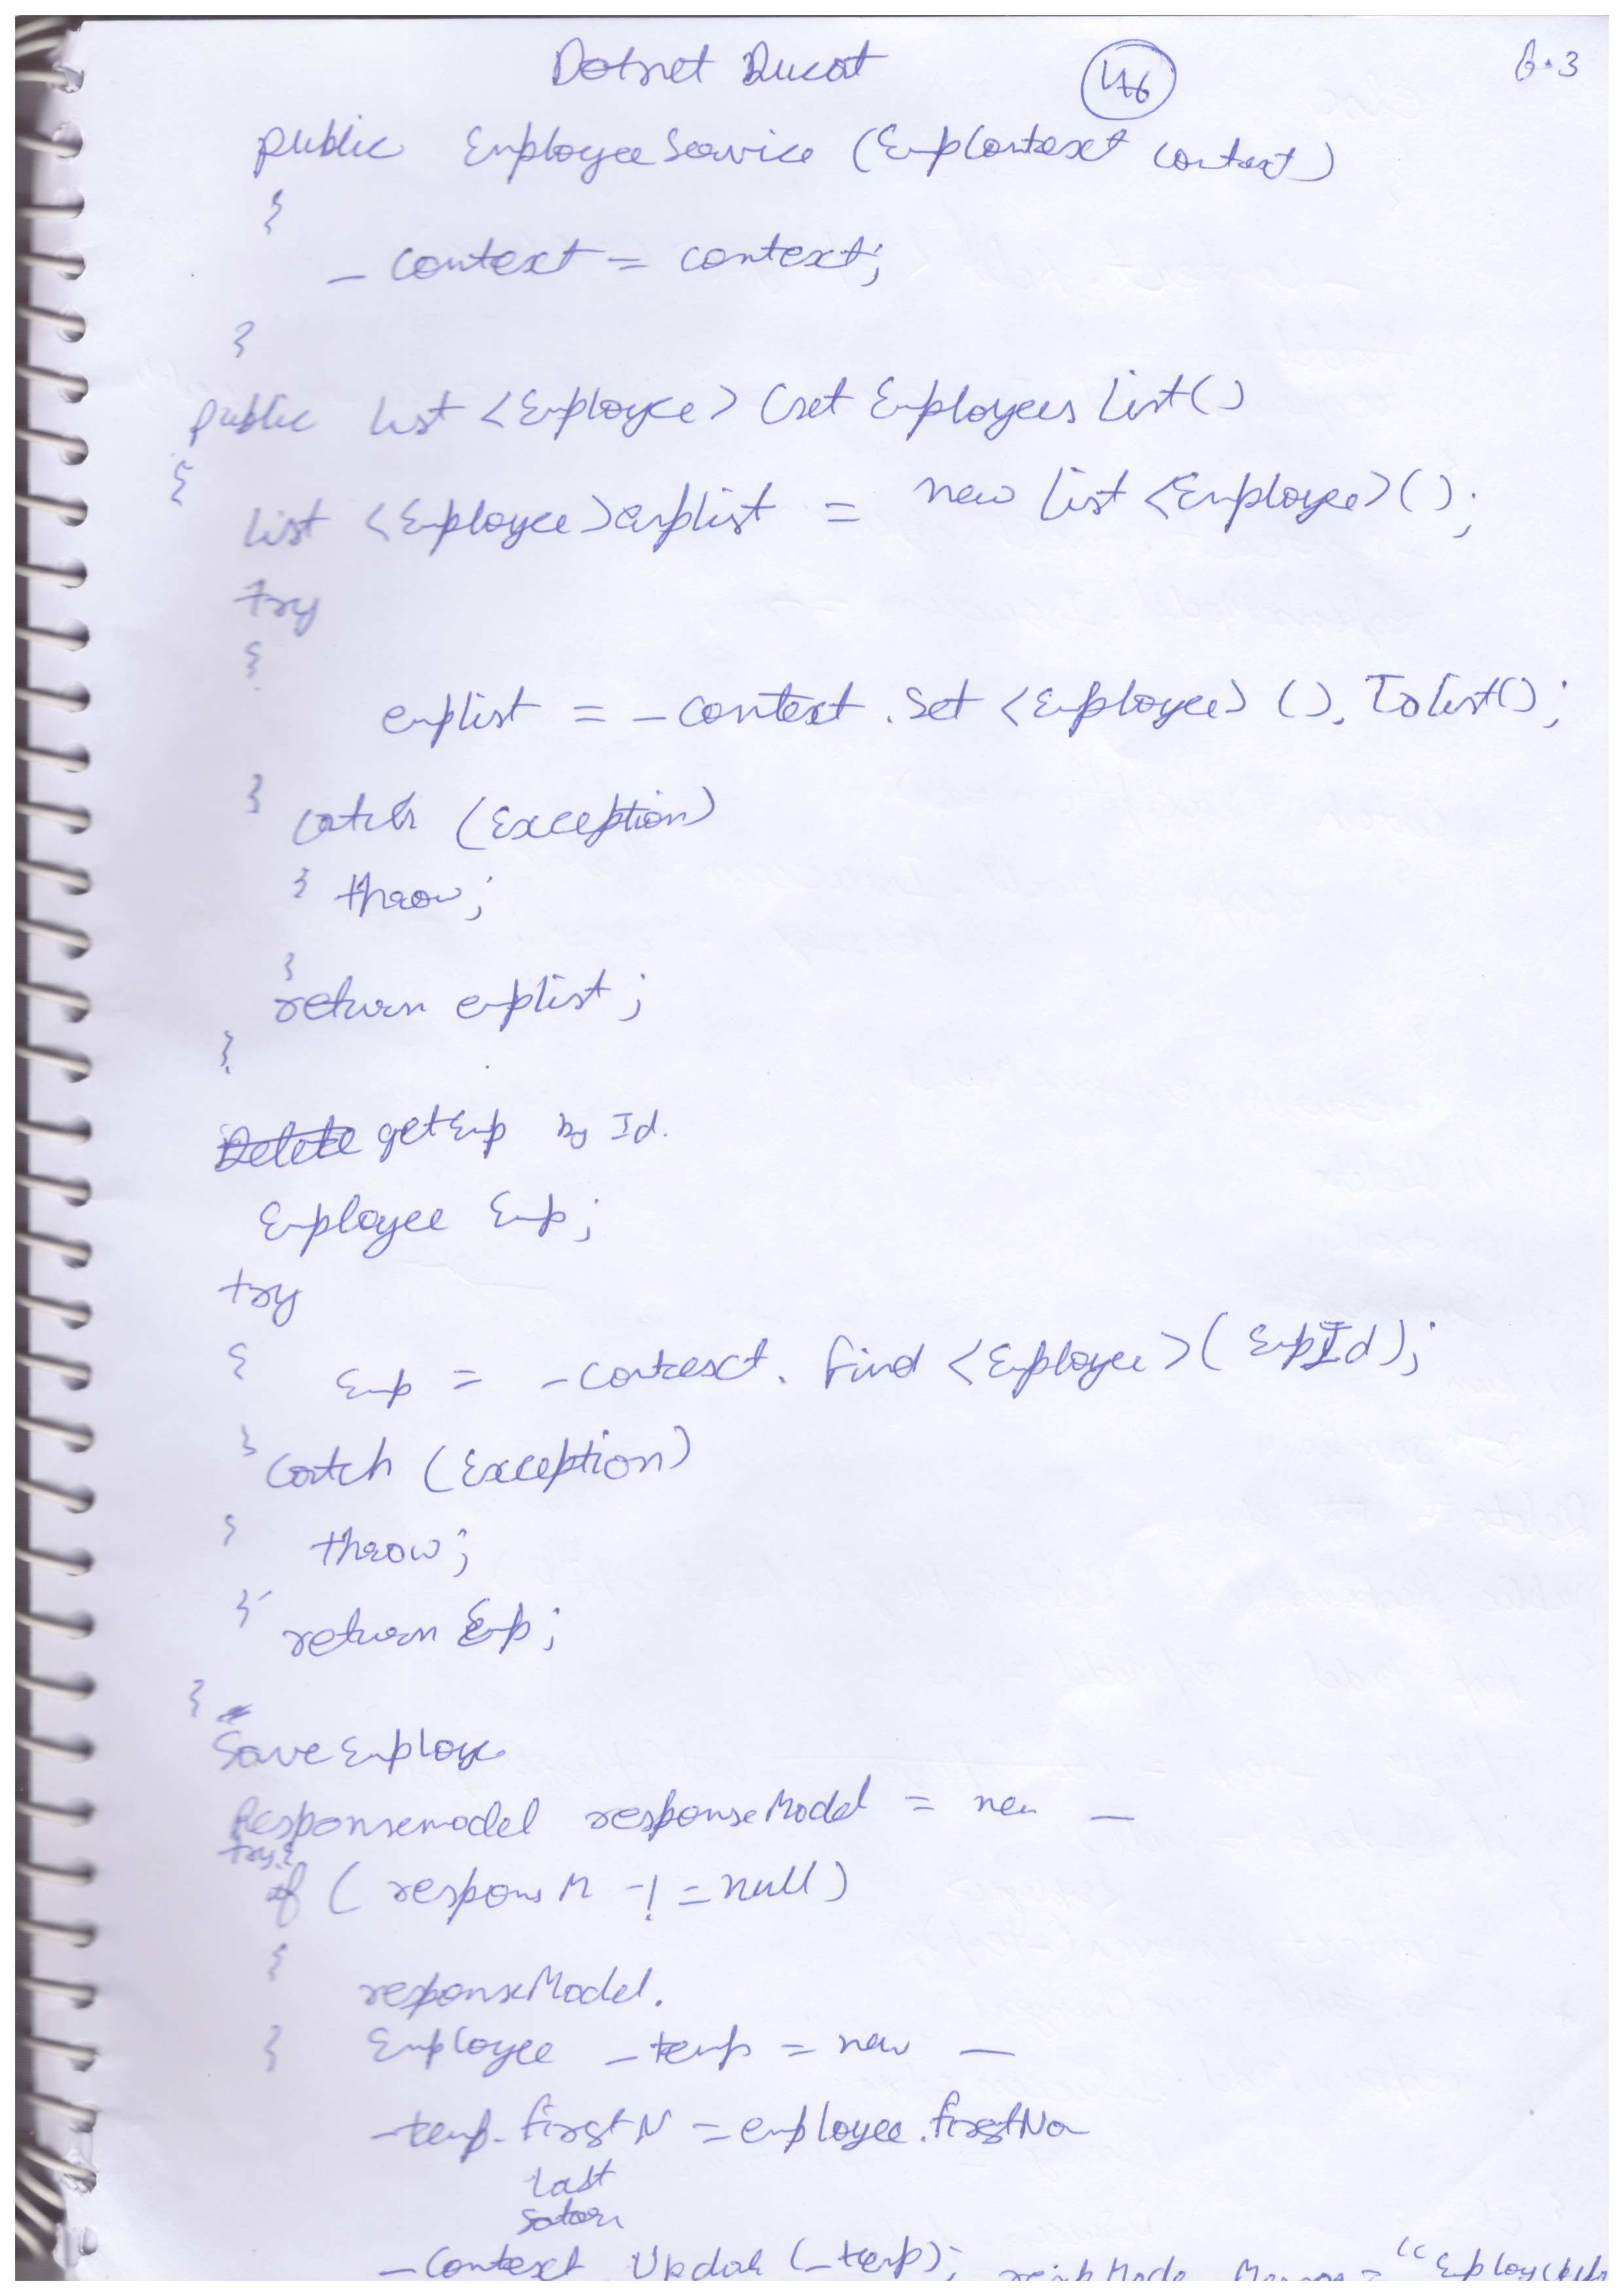 Dotnet Ducat 476 6.3
public EmployeeService (EmpContext context)
{
_context = context;
}
public List <Employee> Get Employees List()
{
List <Employee> emplist = new List <Employee>();
try
{
emplist = _context.Set <Employee> ().ToList();
} catch (Exception)
{ throw;
}
return emplist;
}
Delete getEmp by Id.
Employee Emp;
try
{ Emp = _context. Find <Employee> (EmpId);
} catch (Exception)
{ throw;
} return Emp;
}
Save Employe
Responsemodel responseModel = new —
try {
if ( respons M -!= null)
{
responseModel.
} Employee _temp = new —
_temp.firstN = employee.firstNa
Last
_Context Update (_temp);